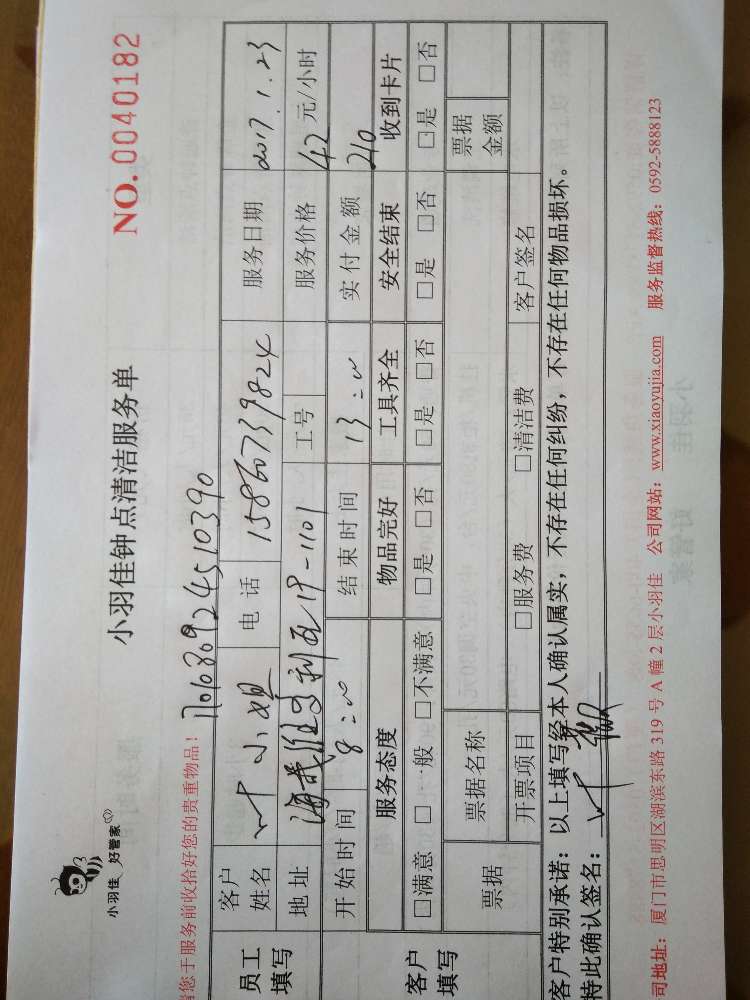 小羽佳 好管家
小羽佳钟点清洁服务单
NO.0040182
请您于服务前收拾好您的贵重物品!
员工填写
客户姓名 叶小姐 电话 服务日期 2017.1.23
地址 工号 服务价格 42元/小时
开始时间 8:00 结束时间 13:00 实付金额 210
客户填写
服务态度 物品完好 工具齐全 安全结束 收到卡片
□满意 □一般 □不满意 □是 □否 □是 □否 □是 □否 □是 □否
票据 票据名称 票据金额
开票项目 □服务费 □清洁费 客户签名
客户特别承诺:以上填写经本人确认属实,不存在任何纠纷,不存在任何物品损坏。
持此确认签名:
司地址:厦门市思明区湖滨东路 319 号 A 幢 2 层小羽佳 公司网站:www.xiaoyujia.com 服务监督热线:0592-5888123